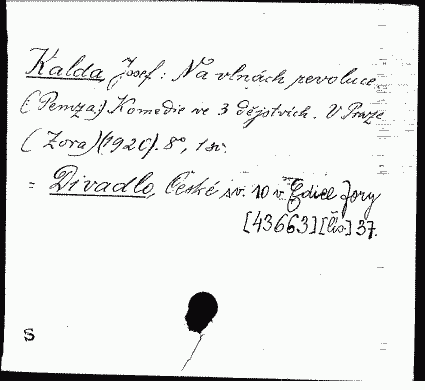 Kalda, Josef: Na vlnách revoluce.
(Penza.) Komedie ve 3 dějstvích. V Praze
(Zora)(1920). 8°, 1 sv.
= Divadlo, České sv. 10 v Edice Zory
[43663][čís.] 37.
S